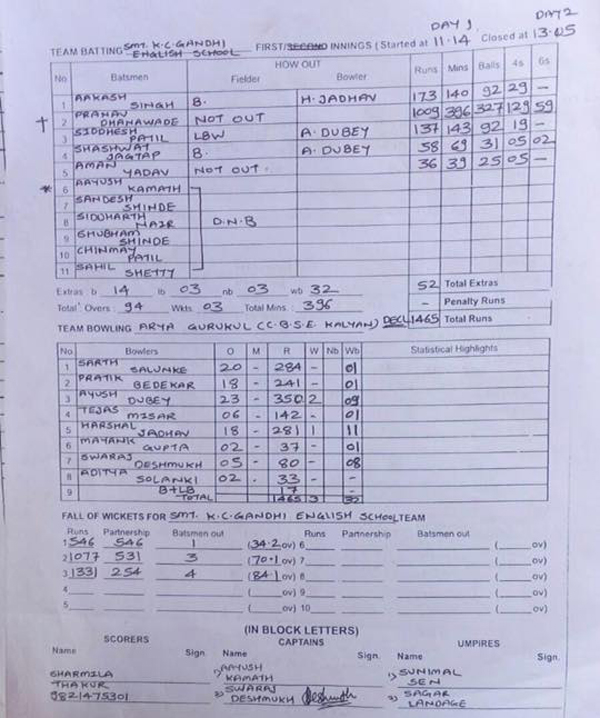 DAY 1 DAY 2
TEAM BATTING SMT. K.C. GANDHI ENGLISH SCHOOL FIRST/SECOND INNINGS (Started at 11.14 Closed at 13.05
No Batsmen HOW OUT Runs Mins Balls 4s 6s
Fielder Bowler
1 AAKASH SINGH B. H. JADHAV 173 140 92 29 -
† 2 PRANAV DHANAWADE NOT OUT 1009 396 327 129 59
3 SIDDHESH PATIL LBW A. DUBEY 137 143 92 19 -
4 SHASHWAT JAGTAP B. A. DUBEY 58 69 31 05 02
5 AMAN YADAV NOT OUT. 36 39 25 05 -
* 6 AAYUSH KAMATH
7 SANDESH SHINDE
8 SIDDHARTH NAIR D.N.B
9 SHUBHAM SHINDE
10 CHINMAY PATIL
11 SAHIL SHETTY
Extras b 14 lb 03 nb 03 wb 32 52 Total Extras
Total Overs : 94 Wkts. 03 Total Mins : 396 - Penalty Runs
DECL 1465 Total Runs
TEAM BOWLING ARYA GURUKUL (C.B.S.E. KALYAN)
No. Bowlers O M R W Nb Wb Statistical Highlights
1 SARTH SALUNKE 20 - 284 - 01
2 PRATIK BEDEKAR 18 - 241 - 01
3 AYUSH DUBEY 23 - 350 2 09
4 TEJAS MISAR 06 - 142 - 01
5 HARSHAL JADHAV 18 - 281 1 11
6 MAYANK GUPTA 02 - 37 - 01
7 SWARAJ DESHMUKH 05 - 80 - 08
8 ADITYA SOLANKI 02 . 33 - -
9 B+LB 17 -
TOTAL 1465 3 32
FALL OF WICKETS FOR SMT. K.C. GANDHI ENGLISH SCHOOL TEAM
Runs Partnership Batsmen out Runs Partnership Batsmen out
1 546 546 1 (34.2 ov) 6 (ov)
2 1077 531 3 (70.1 ov) 7 (ov)
3 1331 254 4 (84.1 ov) 8 (ov)
4 (ov) 9 (ov)
5 (ov) 10 (ov)
(IN BLOCK LETTERS)
SCORERS CAPTAINS UMPIRES
Name Sign. Name Sign. Name Sign.
SHARMILA THAKUR 9821475301
1) AAYUSH KAMATH
2) SWARAJ DESHMUKH Deshmukh
1) SUNIMAL SEN
2) SAGAR LANDAGE